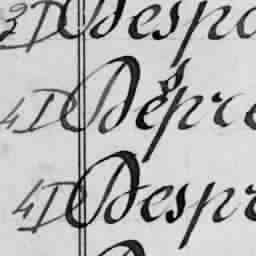 3D Despo
4D Depre
4D Despr